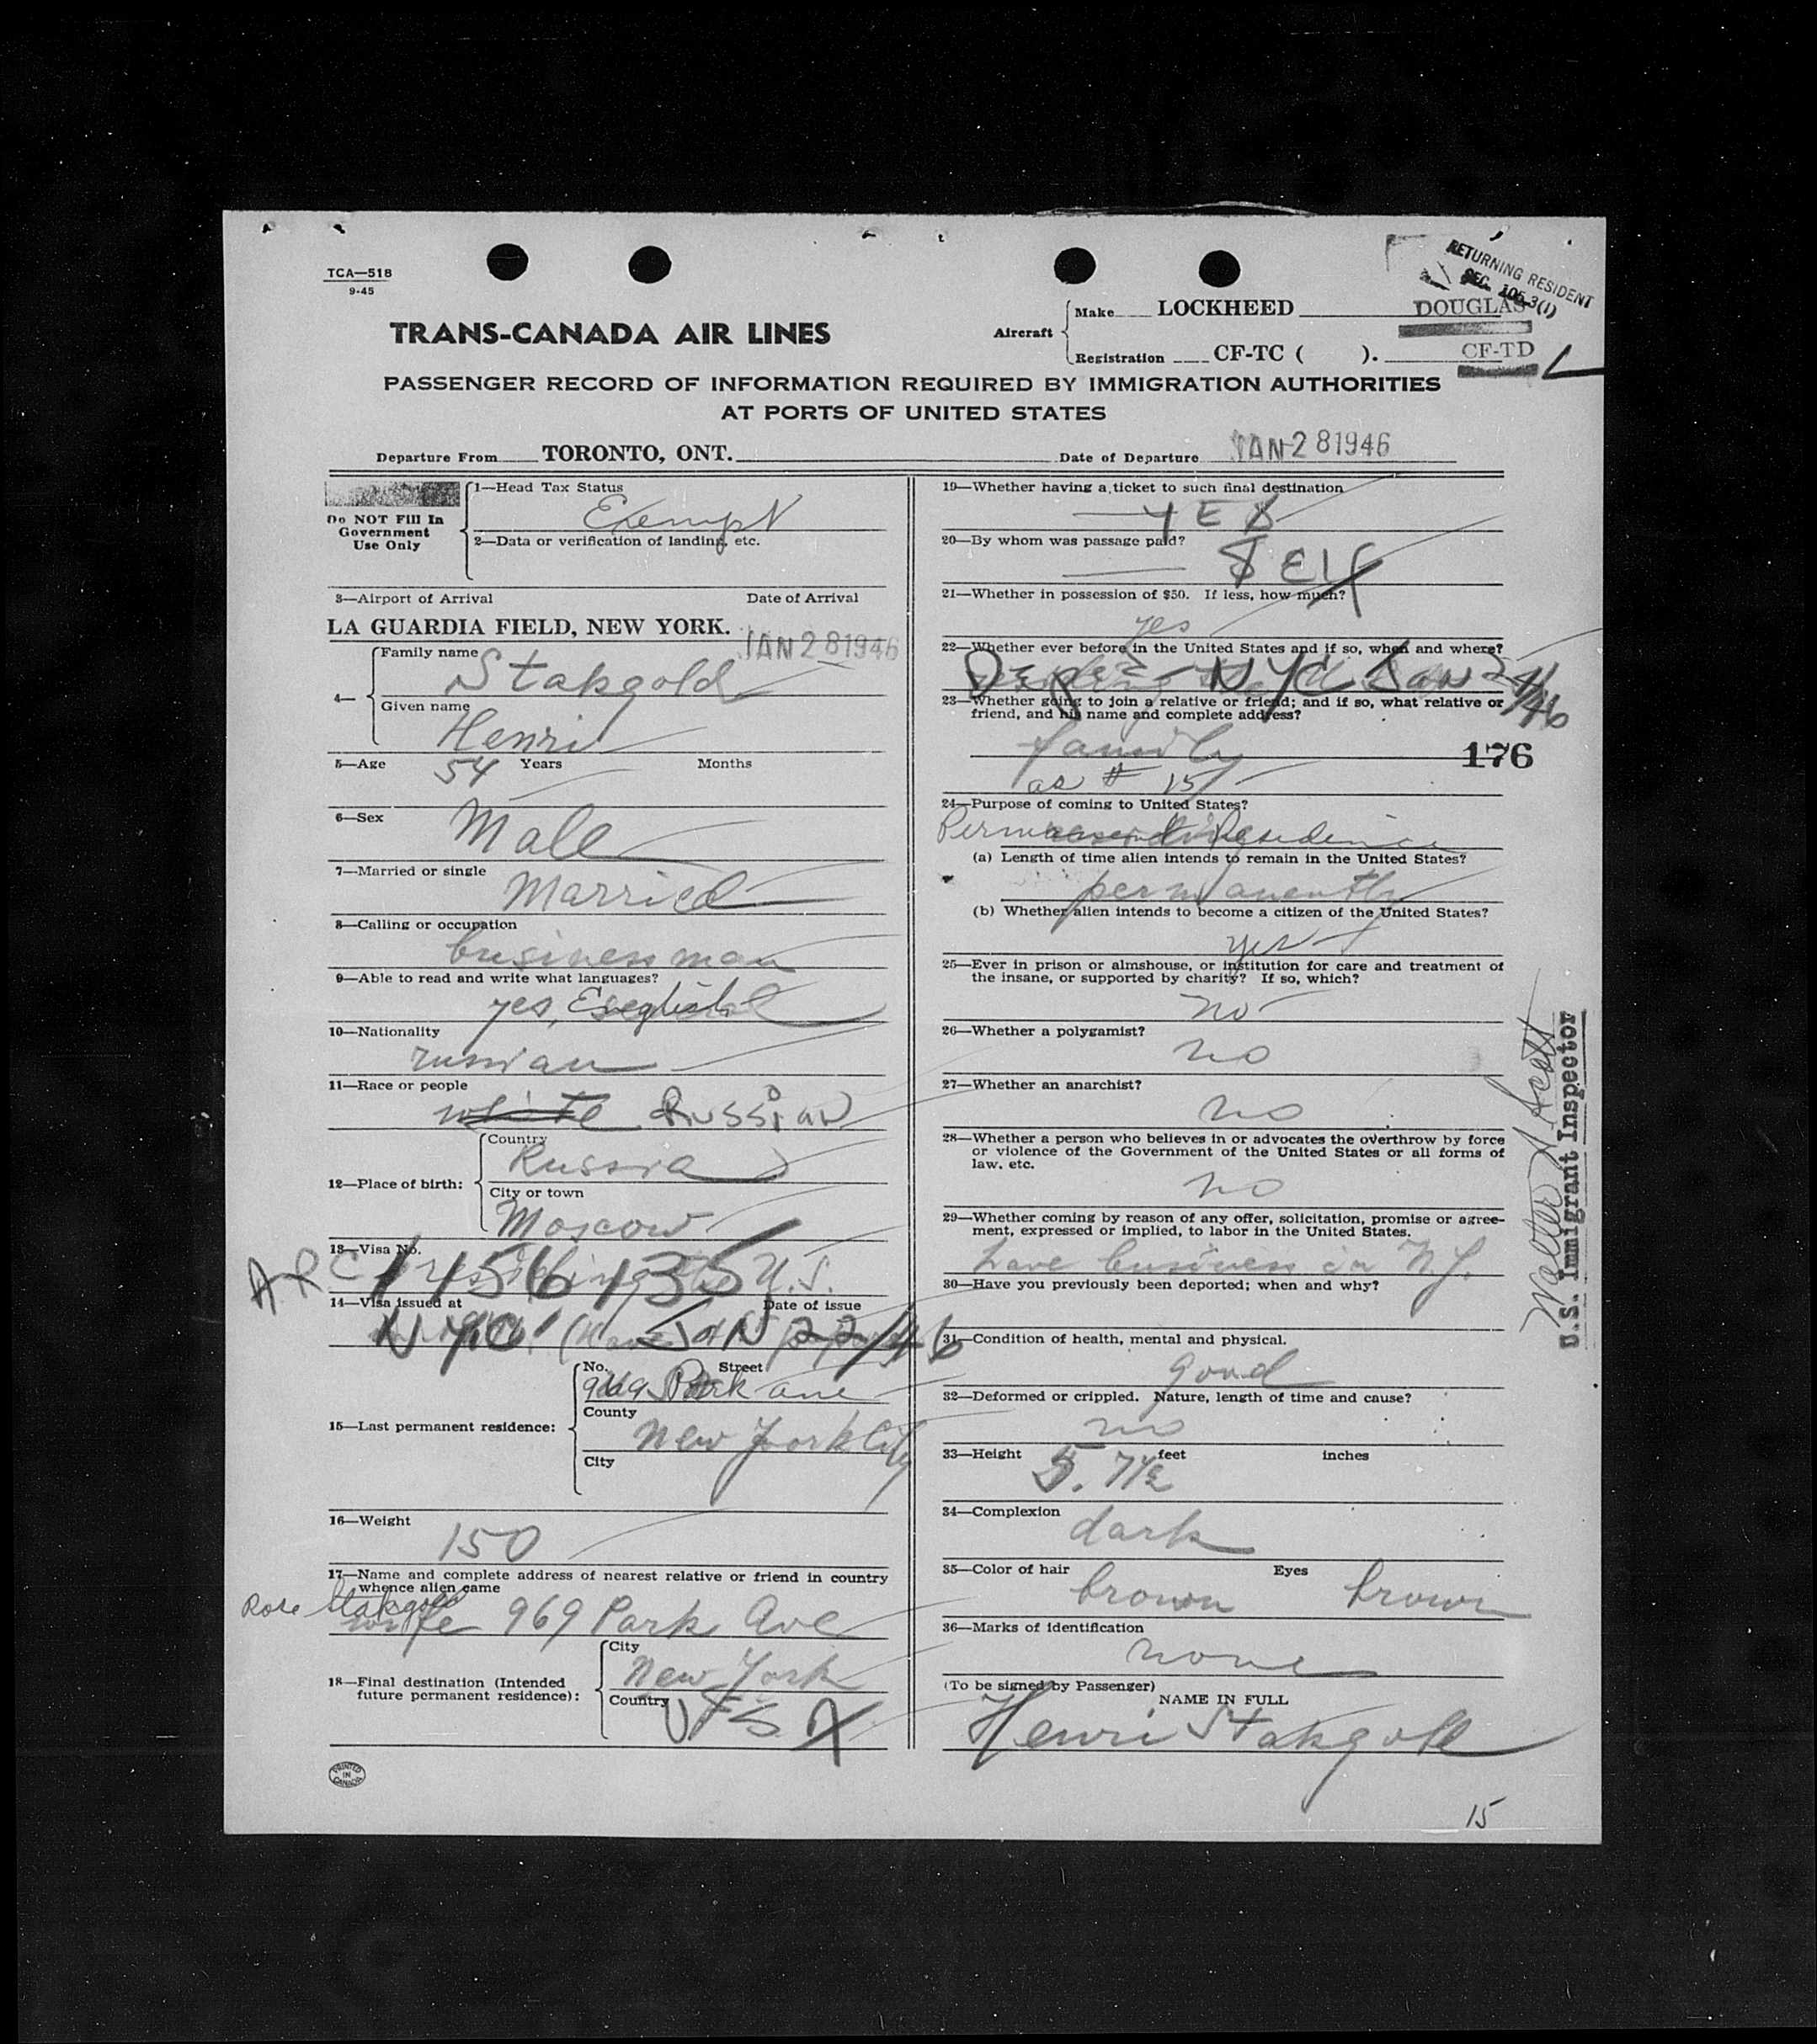 TCA—518
9-45
RETURNING RESIDENT
SEC. 105.3(1)
TRANS-CANADA AIR LINES
Aircraft
Make LOCKHEED DOUGLAS
Registration CF-TC ( ). CF-TD
PASSENGER RECORD OF INFORMATION REQUIRED BY IMMIGRATION AUTHORITIES
AT PORTS OF UNITED STATES
Departure From TORONTO, ONT. Date of Departure JAN 28 1946
Do NOT Fill In
Government
Use Only
1—Head Tax Status
Exempt
2—Data or verification of landing, etc.
3—Airport of Arrival Date of Arrival
LA GUARDIA FIELD, NEW YORK. JAN 28 1946
4—
Family name
Stakgold
Given name
Henri
5—Age 54 Years Months
6—Sex
Male
7—Married or single
Married
8—Calling or occupation
business man
9—Able to read and write what languages?
yes, English
10—Nationality
russian
11—Race or people
white Russian
12—Place of birth:
Country
Russia
City or town
Moscow
13—Visa No.
ARC 1156135 U.S.
14—Visa issued at Date of issue
NYC JAN 22/46
15—Last permanent residence:
No. Street
969 Park ave
County
New York City
City
16—Weight
150
17—Name and complete address of nearest relative or friend in country
whence alien came
Rose Stakgold
wife 969 Park Ave
18—Final destination (Intended
future permanent residence):
City
New York
Country
USA
PRINTED
IN
CANADA
19—Whether having a ticket to such final destination
YES
20—By whom was passage paid?
SELF
21—Whether in possession of $50. If less, how much?
yes
22—Whether ever before in the United States and if so, when and where?
NYC Jan 24/46
23—Whether going to join a relative or friend; and if so, what relative or
friend, and his name and complete address?
family
176
as # 15
24—Purpose of coming to United States?
Permanent Residence
(a) Length of time alien intends to remain in the United States?
permanently
(b) Whether alien intends to become a citizen of the United States?
yes
25—Ever in prison or almshouse, or institution for care and treatment of
the insane, or supported by charity? If so, which?
no
26—Whether a polygamist?
no
27—Whether an anarchist?
no
28—Whether a person who believes in or advocates the overthrow by force
or violence of the Government of the United States or all forms of
law, etc.
no
29—Whether coming by reason of any offer, solicitation, promise or agree-
ment, expressed or implied, to labor in the United States.
have business in N.Y.
30—Have you previously been deported; when and why?
31—Condition of health, mental and physical.
good
32—Deformed or crippled. Nature, length of time and cause?
no
33—Height 5. 7½ feet inches
34—Complexion
dark
35—Color of hair Eyes
brown brown
36—Marks of identification
none
(To be signed by Passenger)
NAME IN FULL
Henri Stakgold
15
Walter A Scott
U.S. Immigrant Inspector